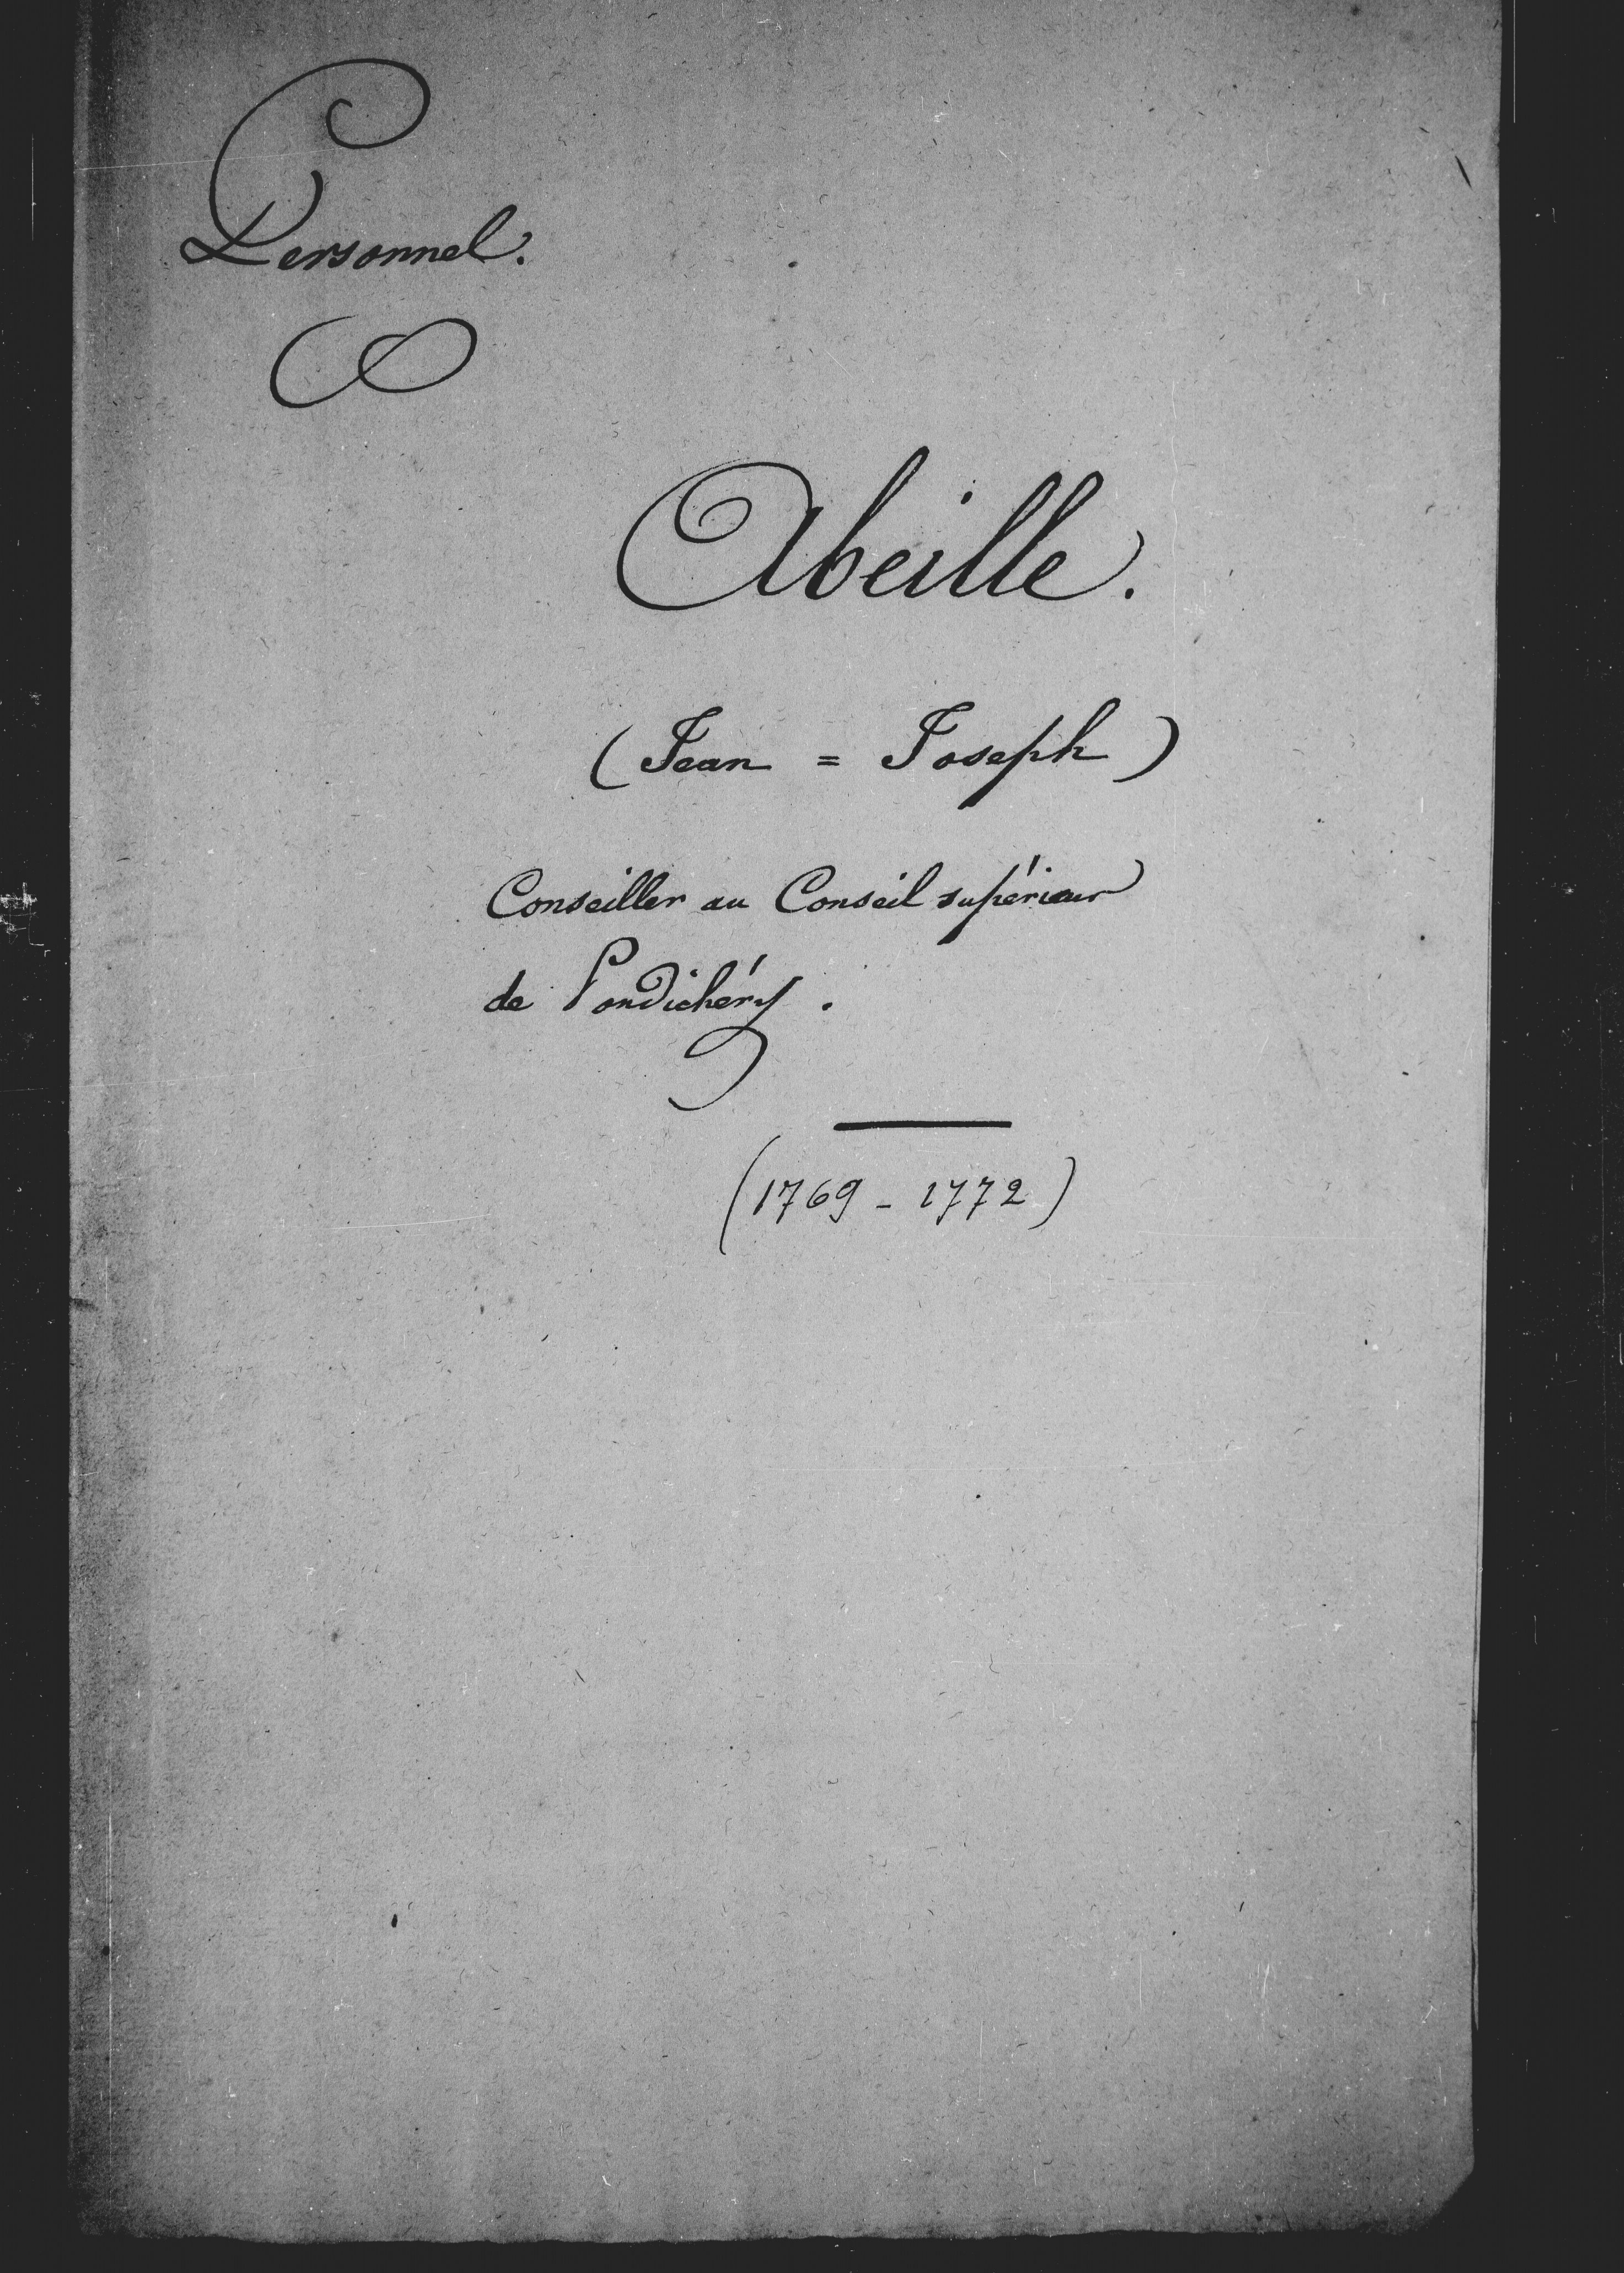 Personnel.
Abeille.
(Jean = Joseph)
Conseiller au Conseil supérieur
de Pondichéry.
(1769 - 1772)